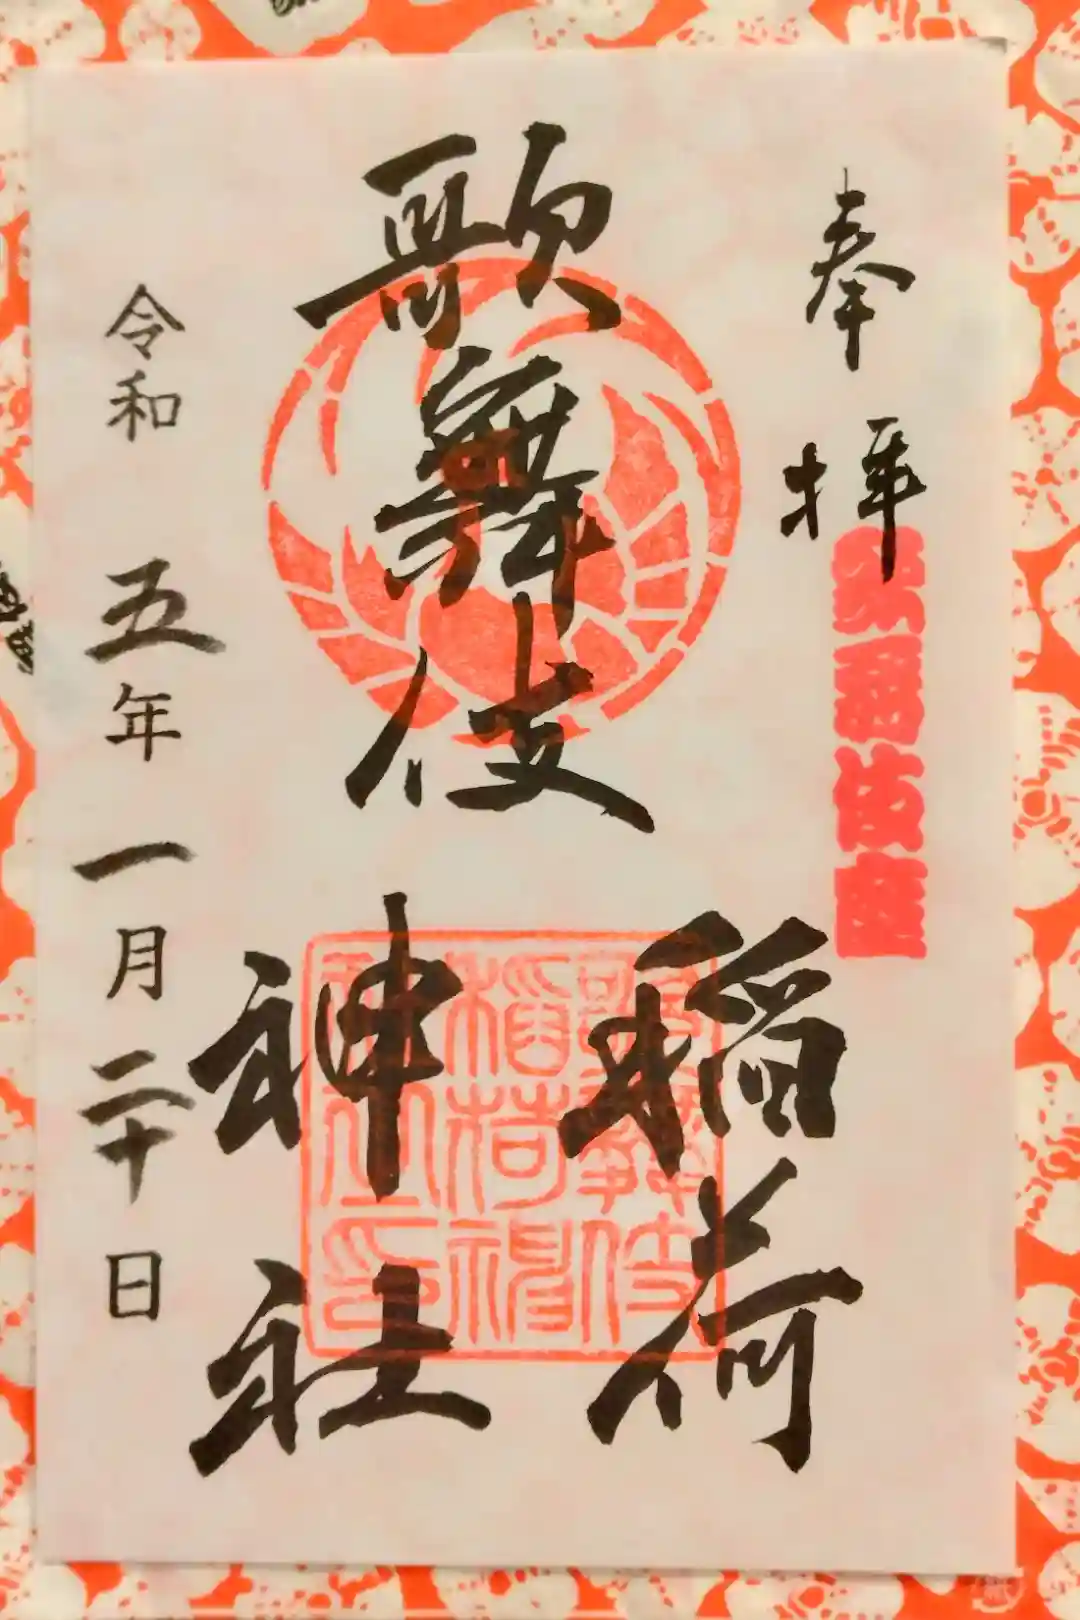 奉拝
歌舞伎座
歌舞伎
稲荷
神社
歌舞伎
稲荷神
社之印
令和五年一月二十日